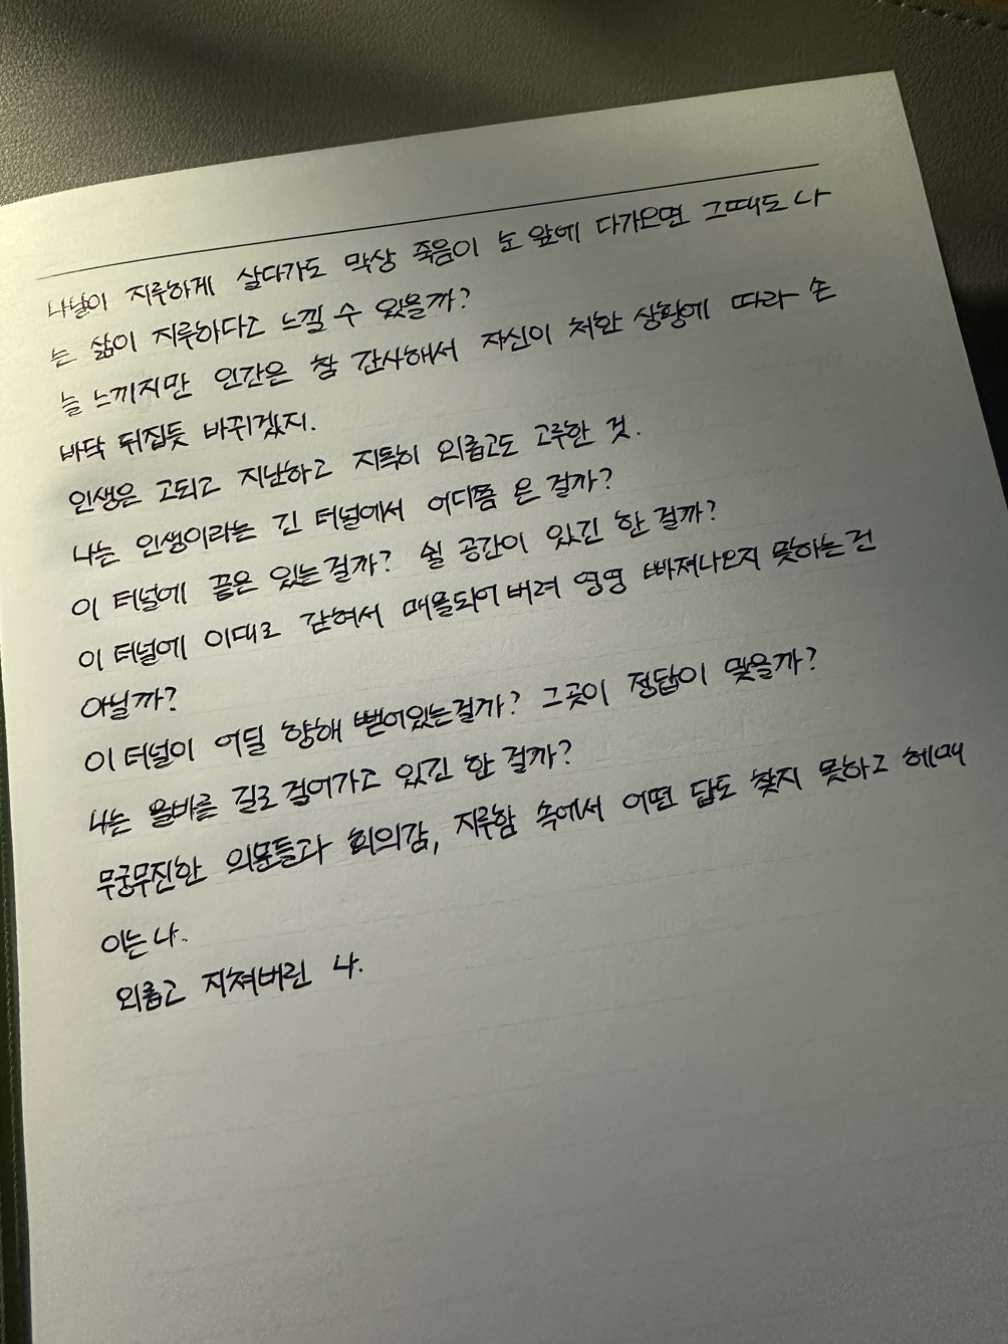 나날이 지루하게 살다가도 막상 죽음이 눈 앞에 다가오면 그때도 나
는 삶이 지루하다고 느낄 수 있을까?
늘 느끼지만 인간은 참 간사해서 자신이 처한 상황에 따라 손
바닥 뒤집듯 바뀌겠지.
인생은 고되고 지난하고 지독히 외롭고도 고루한 것.
나는 인생이라는 긴 터널에서 어디쯤 온 걸까?
이 터널에 끝은 있는걸까? 쉴 공간이 있긴 한 걸까?
이 터널에 이대로 갇혀서 매몰되어 버려 영영 빠져나오지 못하는건
아닐까?
이 터널이 어딜 향해 뻗어있는걸까? 그곳이 정답이 맞을까?
나는 올바를 길로 걸어가고 있긴 한 걸까?
무궁무진한 의문들과 회의감, 지루함 속에서 어떤 답도 찾지 못하고 헤매
이는 나.
외롭고 지쳐버린 나.